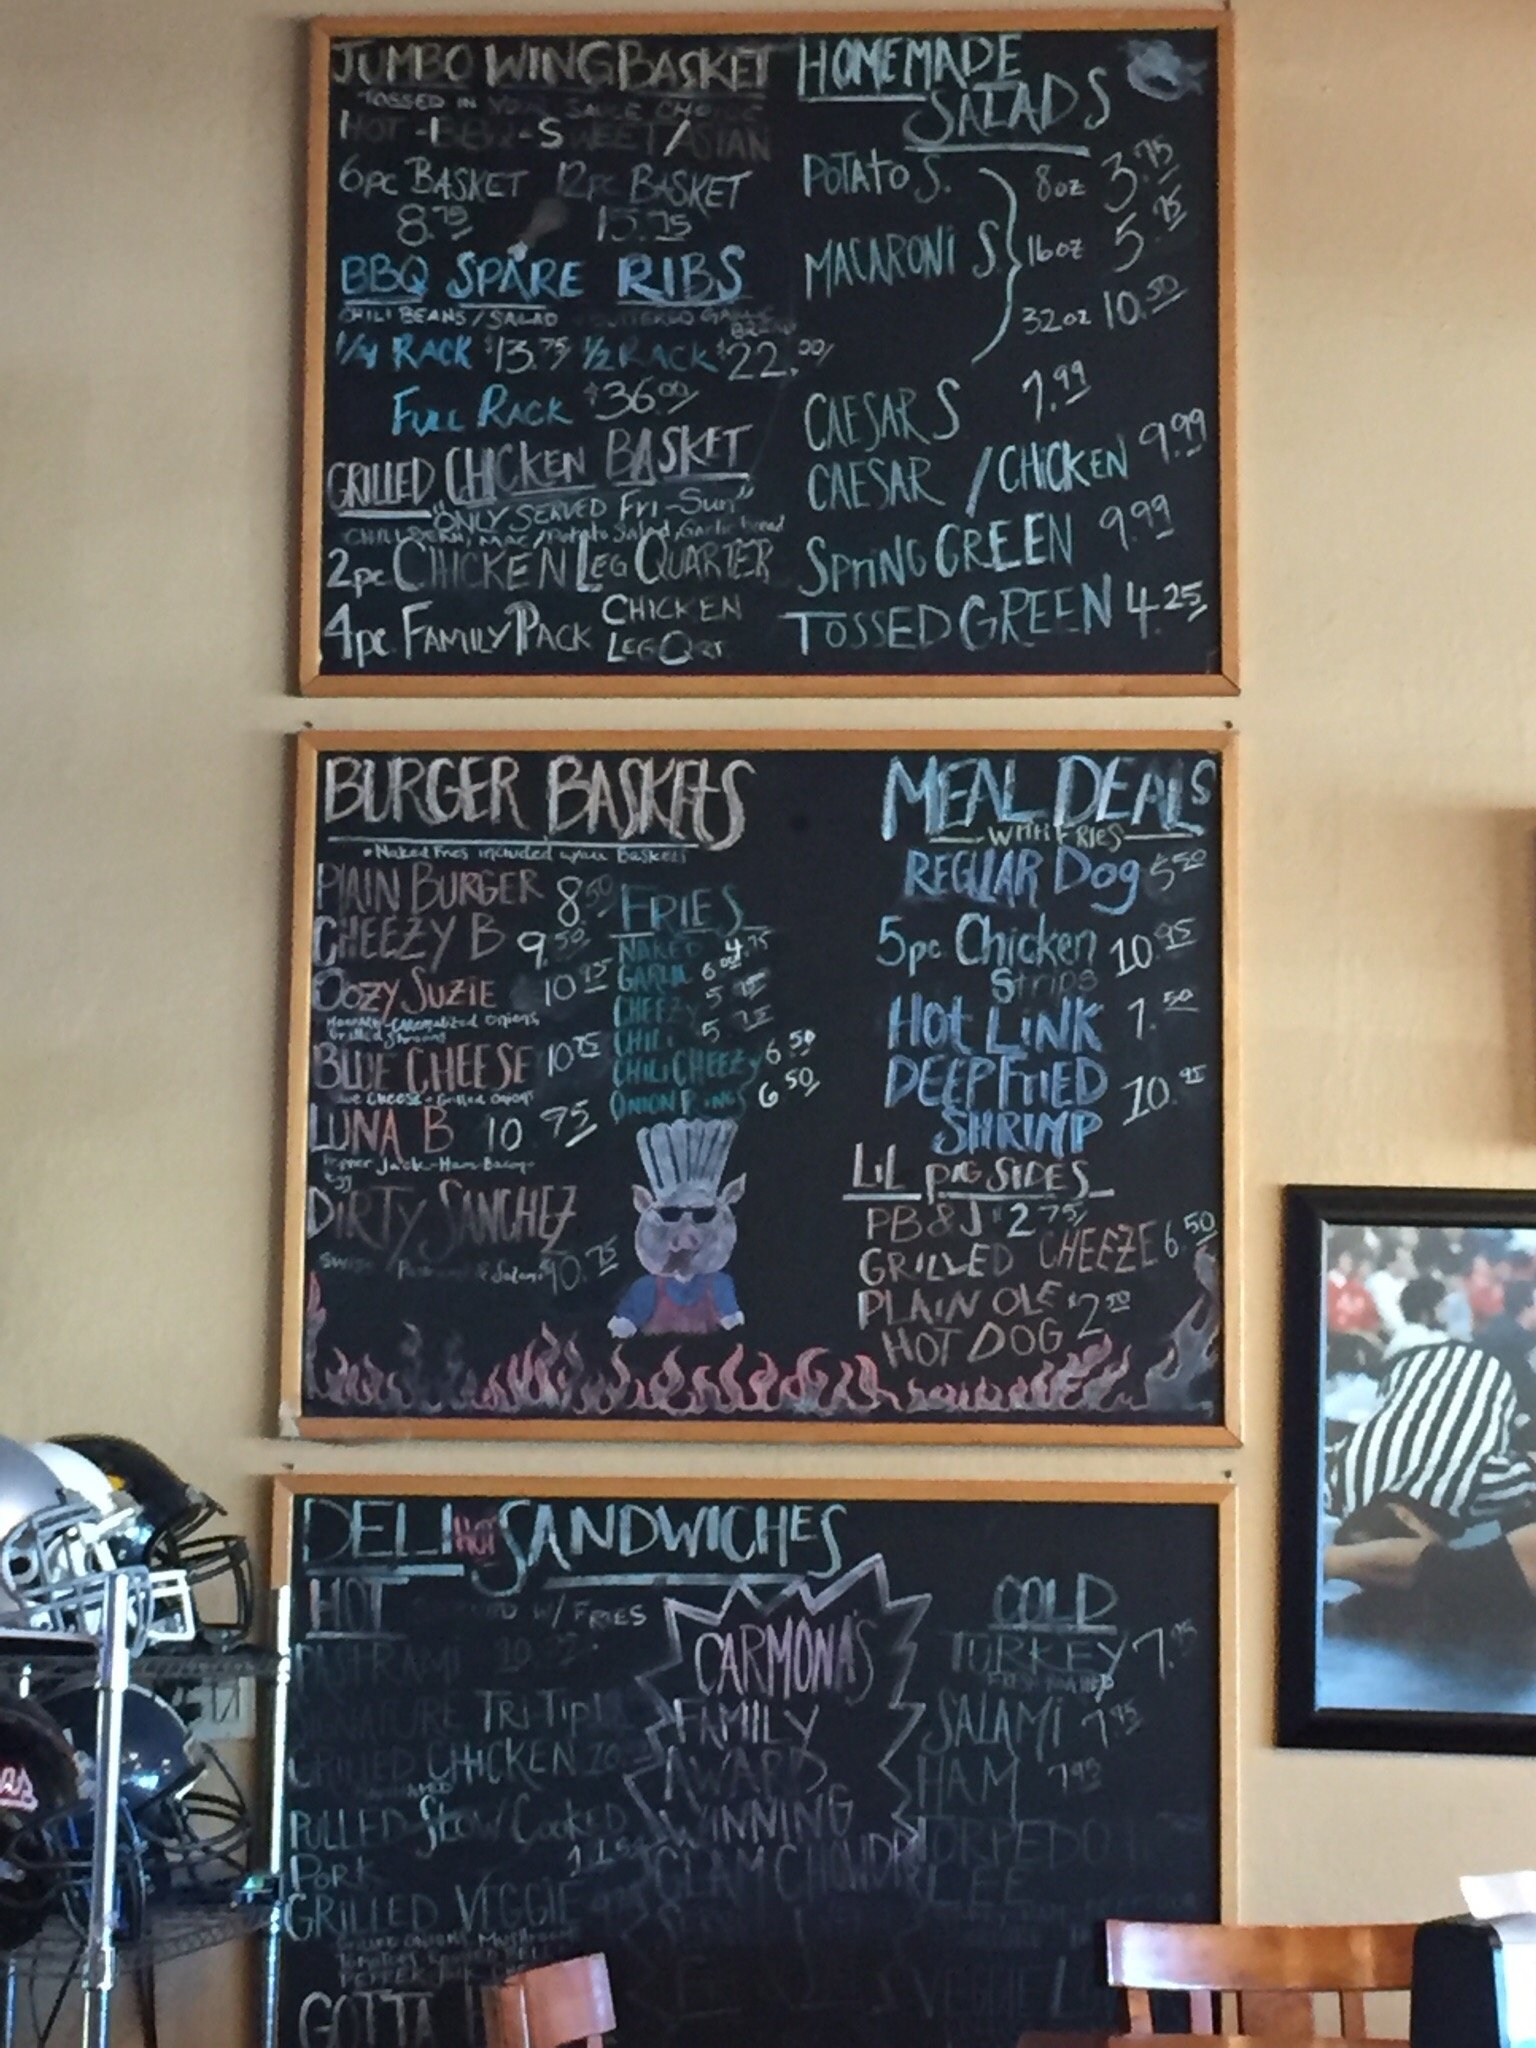 JUMBO WING BASKET
TOSSED IN YOUR SAUCE CHOICE
HOT - BBQ - SWEET / ASIAN
6pc BASKET 12pc BASKET
8.75 15.75
BBQ SPARE RIBS
CHILI BEANS / SALAD BUTTERED GARLIC
1/4 RACK $13.75 1/2 RACK $22.00
FULL RACK $36.00
GRILLED CHICKEN BASKET
"ONLY SERVED Fri-Sun"
CHILI BEAN, MAC / Potato Salad, Garlic bread
2pc CHICKEN LEG QUARTER
4pc FAMILY PACK CHICKEN
LEG Qrt
HOMEMADE
SALADS
POTATO S. 8oz 3.75
MACARONI S 16oz 5.75
32oz 10.50
CAESAR S 7.99
CAESAR / CHICKEN 9.99
SPRING GREEN 9.99
TOSSED GREEN 4.25
BURGER BASKETS
Naked Fries included w/all Baskets
PLAIN BURGER 8.50
CHEEZY B 9.50
OOZY SUZIE 10.95
Caramelized Onions,
Grilled Shrooms
BLUE CHEESE 10.75
Blue Cheese - Grilled Onions
LUNA B 10.75
Pepper Jack - Ham Bacon
Egg
DIRTY SANCHEZ
Swiss Pastrami & Salami 10.75
FRIES
NAKED 4.75
GARLIC 6.00
CHEEZY 5.75
CHILI 5.75
CHILI CHEEZY 6.50
ONION RINGS 6.50
MEAL DEALS
WITH FRIES
REGULAR Dog 5.50
5pc Chicken 10.95
Strips
HOT LINK 7.50
DEEP FRIED 10.95
SHRIMP
LIL PIG SIDES
PB&J $2.75
GRILLED CHEEZE 6.50
PLAIN OLE $2.50
HOT DOG
DELI HOT SANDWICHES
HOT SERVED W/ FRIES
PASTRAMI
SIGNATURE TRI-TIP
GRILLED CHICKEN
PULLED Slow Cooked
PORK
GRILLED VEGGIE
GRILLED ONIONS, MUSHROOM
GOTTA
CARMONA'S
FAMILY
AWARD
WINNING
CLAM CHOWDER
COLD
TURKEY 7.95
FRESH ROASTED
SALAMI 7.95
HAM 7.95
TORPEDO
LEE
VEGGIE